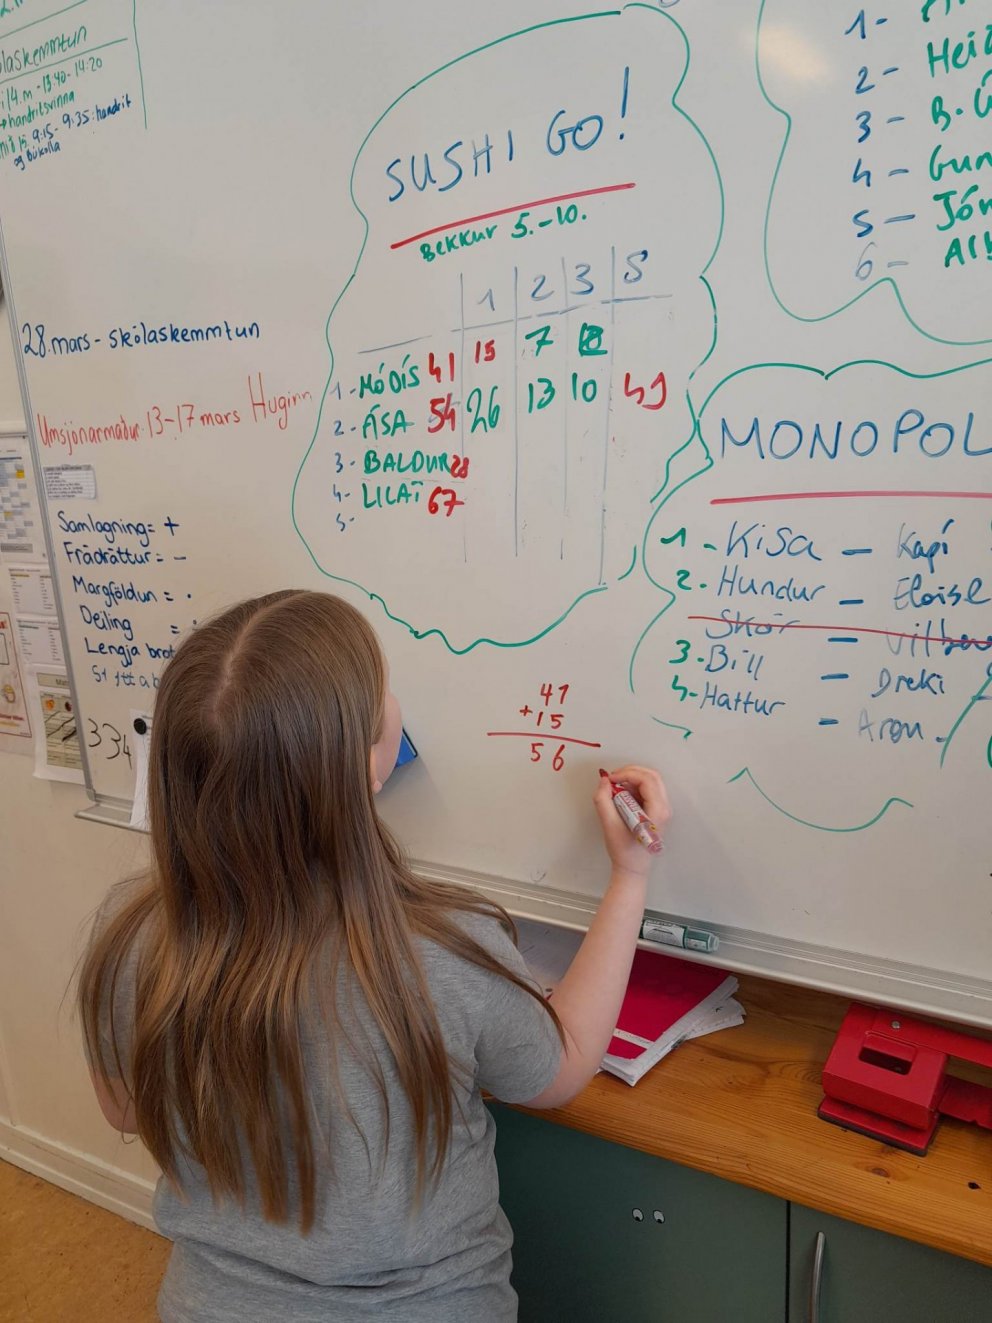 laskemmtun
14.m - 13:40 - 14:20
handritsvinna
9:15 - 9:35: handrit
og Búkolla
28. mars - skólaskemmtun
Umsjónarmaður 13-17 mars Huginn
Samlagning = +
Frádráttur = -
Margföldun = ·
Deiling = :
Lengja brot
334
SUSHI GO!
Bekkur 5.-10.
1 2 3 S
1- MÓDÍS 41 15 7
2- ÁSA 54 26 13 10 49
3- BALDUR 28
4- LILAÏ 67
5-
41
+15
56
1-
2- Hei
3- B.
4- Gun
5- Jón
6- Al
MONOPOL
1 - Kisa - Kapí
2. Hundur - Eloise
Skór -
3. Bill - Dreki
4- Hattur - Aron